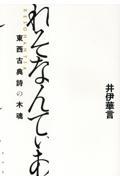 井伊華言
れそなんていあ
東西古典詩の木魂